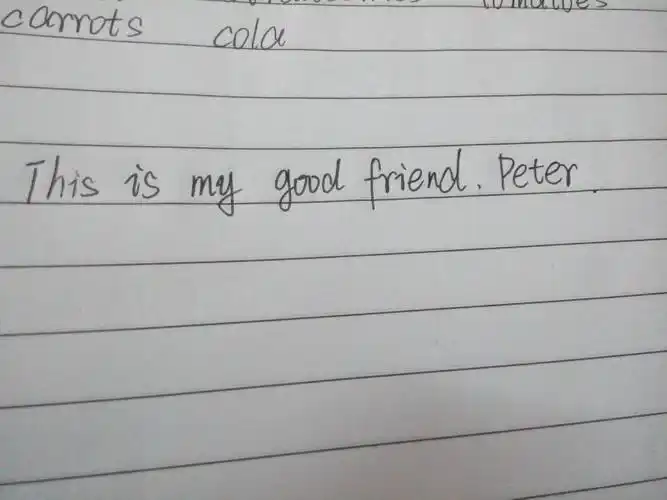 tomatoes
carrots cola
This is my good friend. Peter.